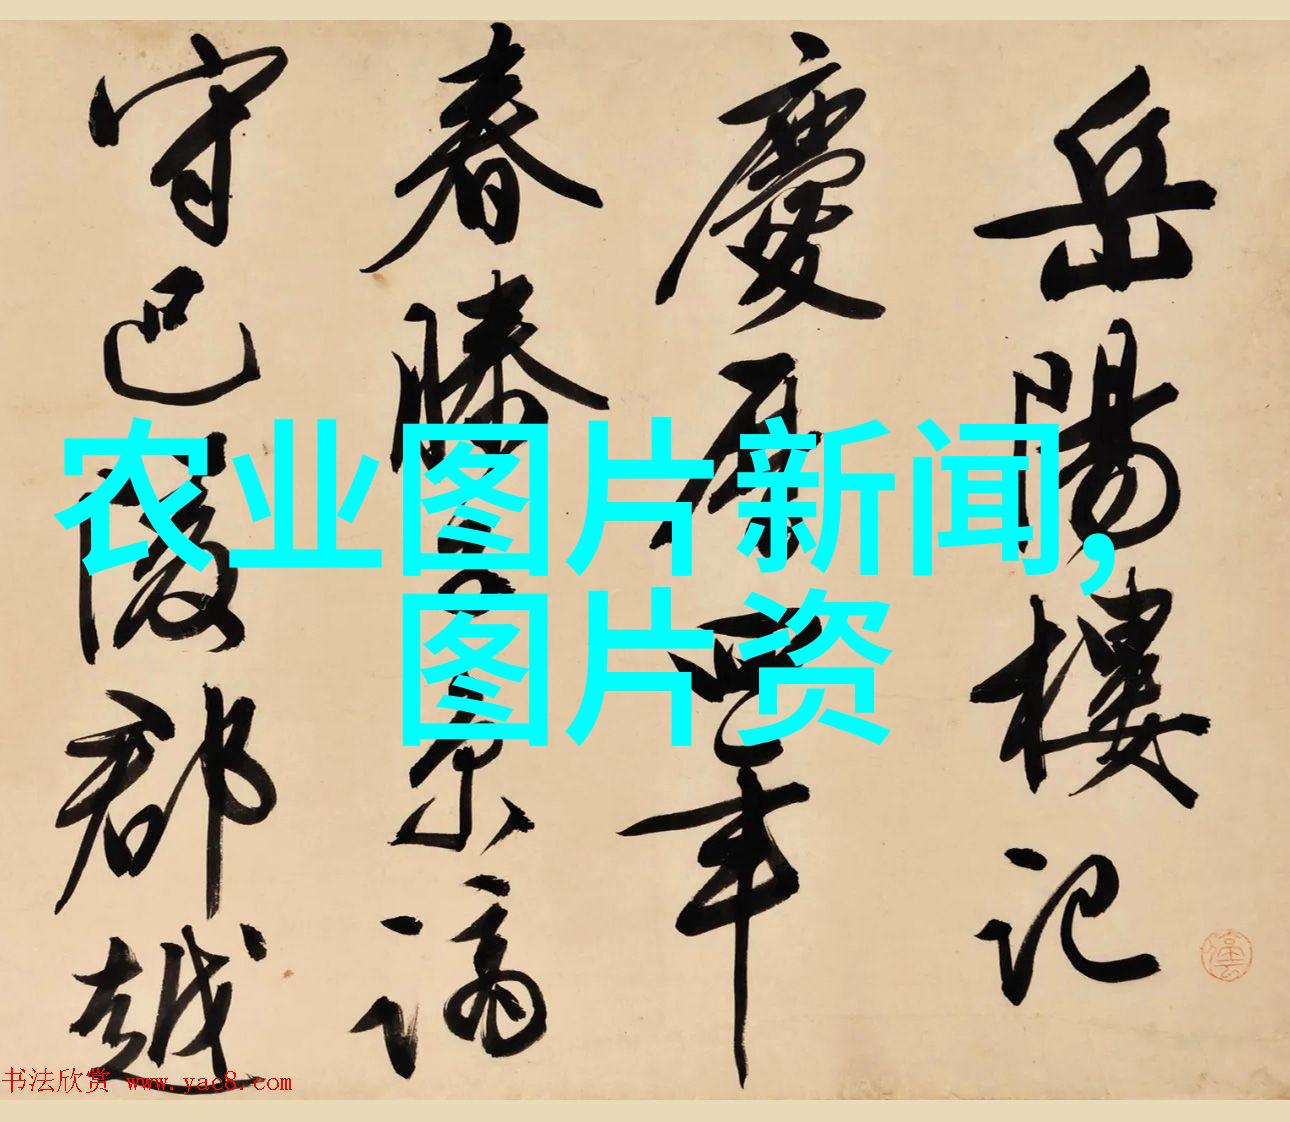 岳陽樓記
慶曆四年
春滕子京謫
守巴陵郡越
农业图片新闻,
图片资
书法欣赏 www.yac8.com